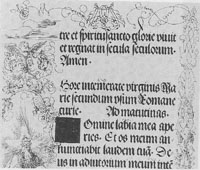 tre et spirituisancto glorie vivit
et regnat in secula seculorum.
Amen.
Hore intemerate virginis Ma
rie secundum usum Romane
curie. Ad matutinas.
Omine labia mea ape
ries. Et os meum an
nunciabit laudem tuā. De
us in adiutorium meum intē